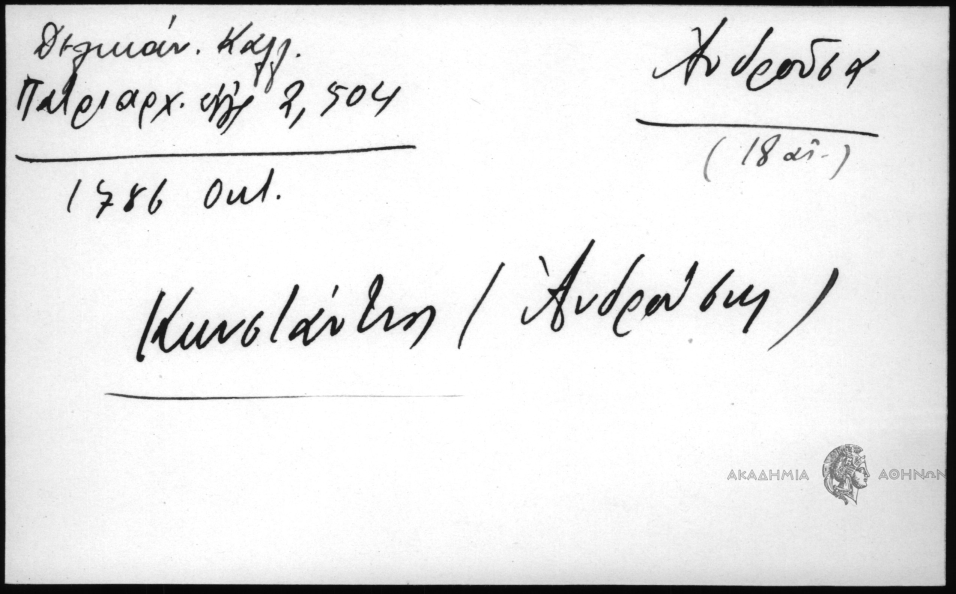 Δελικάν. Καλλ.
Πατριαρχ. έγγρ 2, 504
1786 Οκτ.
Ἀνδροῦσα
(18 αἰ.)
Κωνστάντης (Ἀνδρούσης)
ΑΚΑΔΗΜΙΑ ΑΘΗΝΩΝ